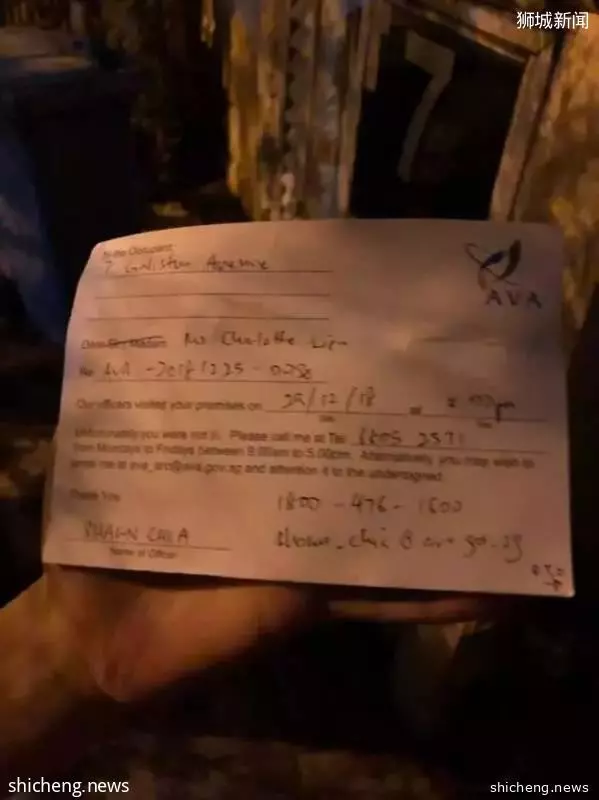 狮城新闻
7
To the Occupant
7
AVA
Dear Sir/Madam Ms Charlotte
Our officers visited your premises on 29/12/18 at
Date
Unfortunately you were not in. Please call me at Tel: 6805
from Mondays to Fridays between 9.00am to 5.00pm. Alternatively, you may wish to
email me at ava_arc@ava.gov.sg and attention it to the undersigned.
Thank You
1800-476-1600
SHAWN CHIA
Name of Officer
shicheng.news
shicheng.news